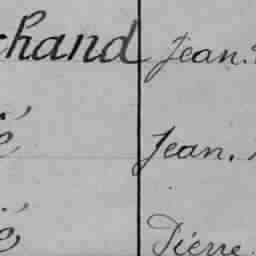 chand Jean.
é Jean.
é Pierre